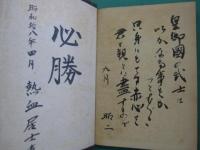 皇御國の武士は
いかなる事をか
つとむべき
只身にもてる赤心を
君と親とに盡すまで
九月
必勝
昭和拾八年四月
熱血居士